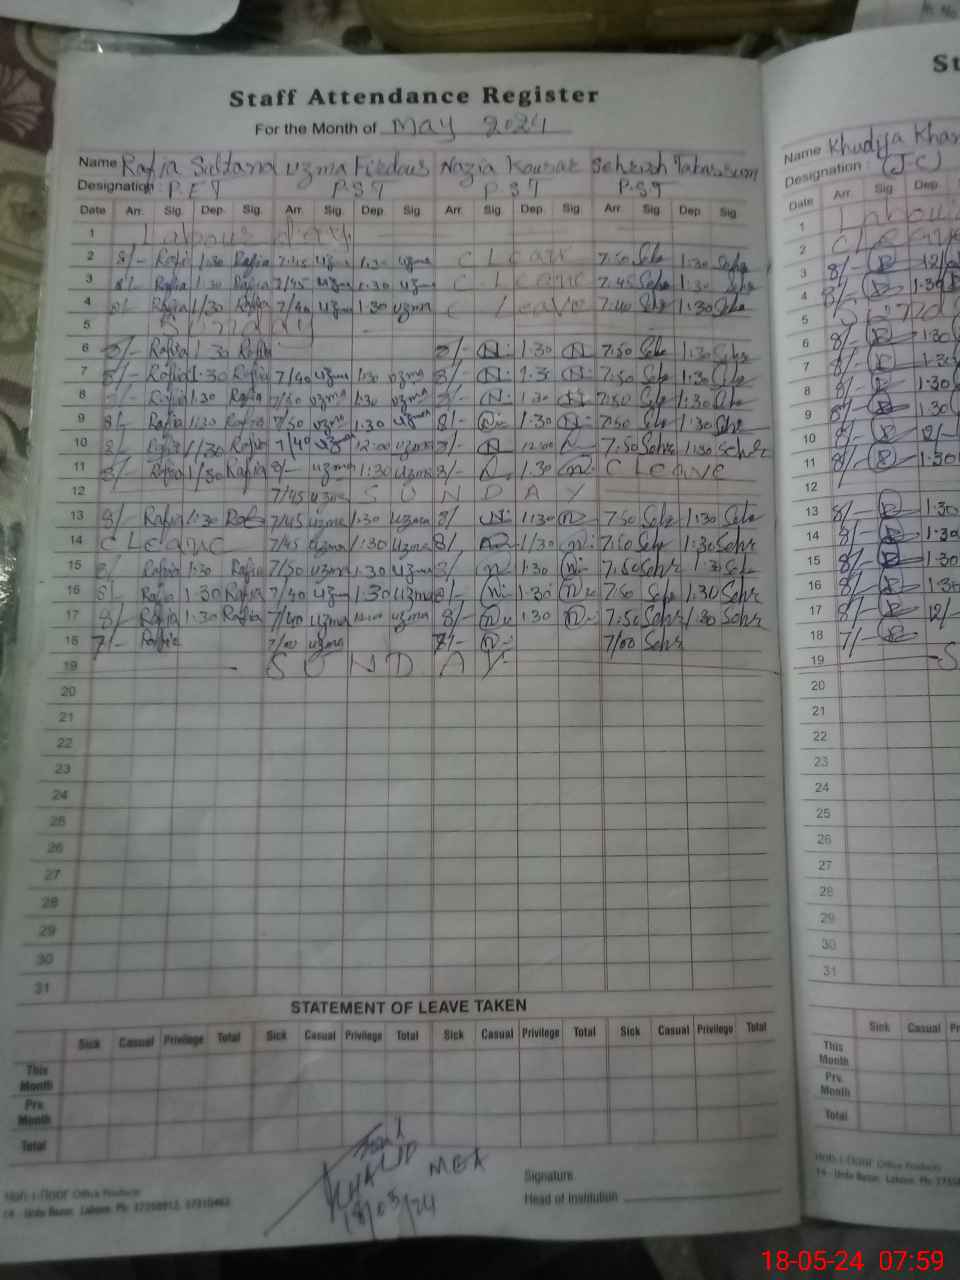 Staff Attendance Register
For the Month of May 2024
Name Rafia Sultana Uzma Firdous Nazia Kousar Sehrish Tabassum
Designation: PET PST PST PST
Date Arr. Sig. Dep. Sig. Arr. Sig. Dep. Sig. Arr. Sig. Dep. Sig. Arr. Sig. Dep. Sig.
1 Labour day
2 8/- Rafia 1:30 Rafia 7:45 uzma 1:30 uzma C Leave 7:50 Sehr 1:30 Sehr
3 8/- Rafia 1:30 Rafia 7/45 uzma 1:30 uzma C Leave 7:45 Sehr 1:30 Sehr
4 8/- Rafia 1/30 Rafia 7/40 uzma 1:30 uzma C Leave 7:40 Sehr 1:30 Sehr
5 Sunday
6 8/- Rafia 1:30 Rafia 8/- N 1:30 N 7:50 Sehr 1:30 Sehr
7 8/- Rafia 1:30 Rafia 7/40 uzma 1:30 uzma 8/- N 1:30 N 7:50 Sehr 1:30 Sehr
8 Rafia 1:30 Rafia 7/50 uzma 1:30 uzma N 1:30 N 7:50 Sehr 1:30 Sehr
9 8/- Rafia 1:30 Rafia 7/50 uzma 1:30 uzma 8/- N 1:30 N 7:50 Sehr 1:30 Sehr
10 8/- Rafia 1/30 Rafia 7/40 uzma 12:00 uzma 8/- N 12:00 N 7:50 Sehr 1:30 Sehr
11 8/- Rafia 1/30 Rafia 8/- uzma 1:30 uzma 8/- N 1:30 N C Leave
12 7/45 uzma SUNDAY
13 8/- Rafia 1:30 Rafia 7/45 uzma 1:30 uzma 8/ N 1:30 N 7:50 Sehr 1:30 Sehr
14 C Leave 7/45 uzma 1:30 uzma 8/ N 1/30 N 7:50 Sehr 1:30 Sehr
15 8/ Rafia 1:30 Rafia 7/50 uzma 1:30 uzma 8/- N 1:30 N 7:50 Sehr 1:30 Sehr
16 8/- Rafia 1:30 Rafia 7/40 uzma 1:30 uzma 8/- N 1:30 N 7:50 Sehr 1:30 Sehr
17 8/- Rafia 1:30 Rafia 7/40 uzma 12:00 uzma 8/- N 1:30 N 7:50 Sehr 1:30 Sehr
18 7/- Rafia 7/00 uzma 7/- N 7/00 Sehr
19 SUNDAY
20
21
22
23
24
25
26
27
28
29
30
31
STATEMENT OF LEAVE TAKEN
Sick Casual Privilege Total Sick Casual Privilege Total Sick Casual Privilege Total Sick Casual Privilege Total
This Month
Prv. Month
Total
KHALID MEA
18/05/24
Signature
Head of Institution
Office Products
14 - Urdu Bazar, Lahore. Ph:
St
Name Khudija Khan
Designation : (J C)
Date Arr. Sig. Dep.
1 Labou
2 C Leave
3 8/- 12/
4 8/- 1:30
5 Sund
6 8/- 1:30
7 8/- 1:30
8 8/- 1:30
9 8/- 1:30
10 8/- 12/-
11 8/- 1:30
12
13 8/- 1:30
14 8/- 1:30
15 8/- 1:30
16 8/- 1:30
17 8/- 12/-
18 7/-
19 S
20
21
22
23
24
25
26
27
28
29
30
31
Sick Casual Pr
This Month
Prv. Month
Total
Office Products
14 - Urdu Bazar, Lahore. Ph:
18-05-24 07:59